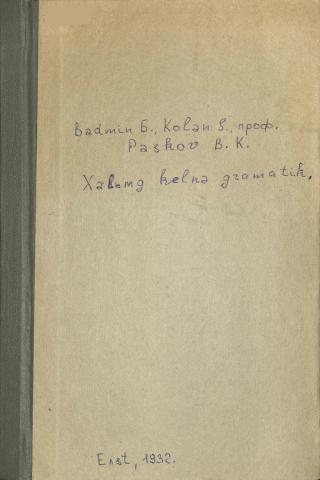 Badmin Б., Kolan S., проф.
Paşkov B. K.
Xalьmg kelnə gramatik.
Elst, 1932.